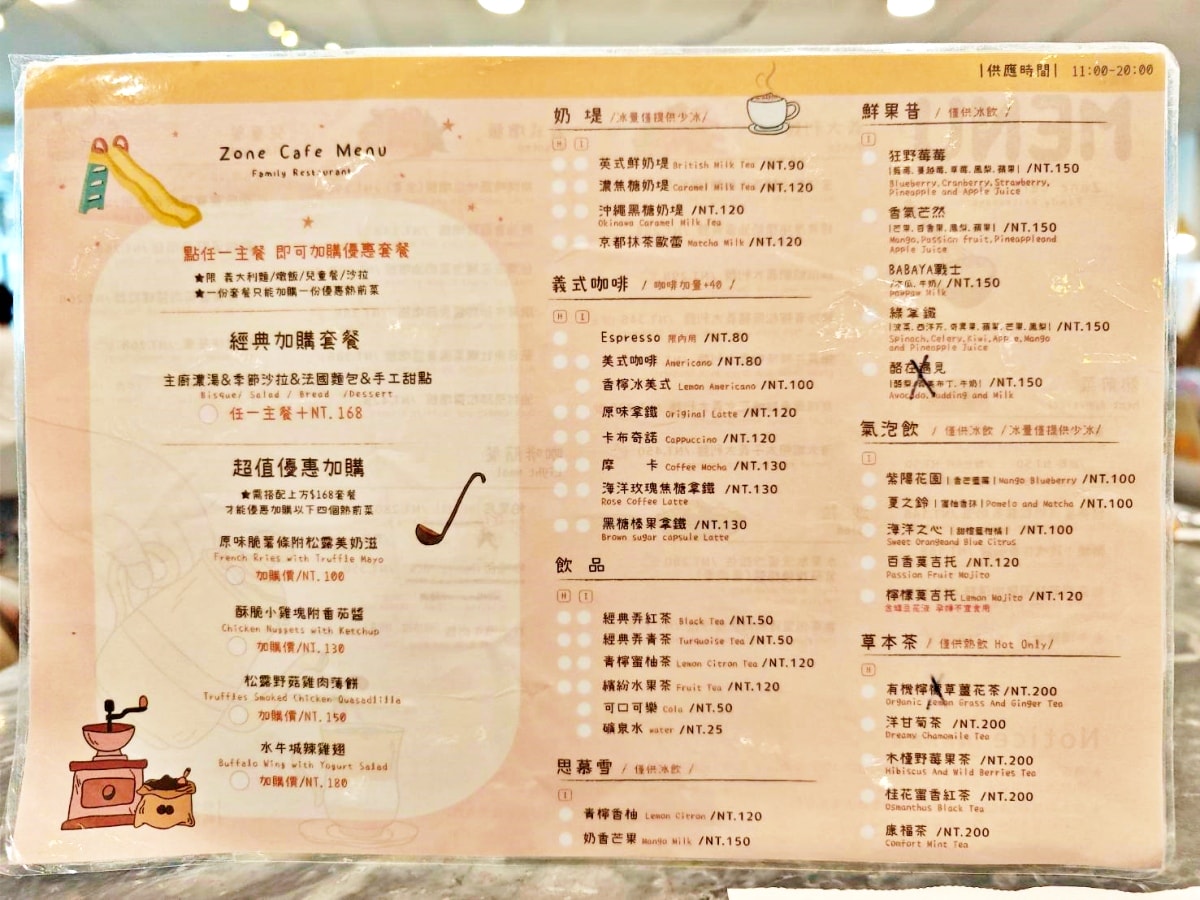 |供應時間| 11:00-20:00
Zone Cafe Menu
Family Restaurant
點任一主餐 即可加購優惠套餐
★限 義大利麵/燉飯/兒童餐/沙拉
★一份套餐只能加購一份優惠熱前菜
經典加購套餐
主廚濃湯&季節沙拉&法國麵包&手工甜點
Bisque/ Salad / Bread /Dessert
任一主餐+NT. 168
超值優惠加購
★需搭配上方$168套餐
才能優惠加購以下四個熱前菜
原味脆薯條附松露美奶滋
French Rries with Truffle Mayo
加購價/NT. 100
酥脆小雞塊附番茄醬
Chicken Nuggets with Ketchup
加購價/NT. 130
松露野菇雞肉薄餅
Truffles Smoked Chicken Quesadilla
加購價/NT. 150
水牛城辣雞翅
Buffalo Wing with Yogurt Salad
加購價/NT. 180
奶 堤 /冰量僅提供少冰/
H I
英式鮮奶堤 British Milk Tea /NT.90
濃焦糖奶堤 Caramel Milk Tea /NT.120
沖繩黑糖奶堤 /NT.120
Okinawa Caramel Milk Tea
京都抹茶歐蕾 Matcha Milk /NT.120
義式咖啡 / 咖啡加量+40 /
H I
Espresso 限內用 /NT.80
美式咖啡 Americano /NT.80
香檸冰美式 Lemon Americano /NT.100
原味拿鐵 Original Latte /NT.120
卡布奇諾 Cappuccino /NT.120
摩 卡 Coffee Mocha /NT.130
海洋玫瑰焦糖拿鐵 /NT.130
Rose Coffee Latte
黑糖榛果拿鐵 /NT.130
Brown sugar capsule Latte
飲 品
H I
經典弄紅茶 Black Tea /NT.50
經典弄青茶 Turquoise Tea /NT.50
青檸蜜柚茶 Lemon Citron Tea /NT.120
繽紛水果茶 Fruit Tea /NT.120
可口可樂 Cola /NT.50
礦泉水 water /NT.25
思慕雪 / 僅供冰飲 /
I
青檸香柚 Lemon Citron /NT.120
奶香芒果 Mango Milk /NT.150
鮮果昔 / 僅供冰飲 /
I
狂野莓莓
|藍莓、蔓越莓、草莓、鳳梨、蘋果| /NT.150
Blueberry,Cranberry,Strawberry,
Pineapple and Apple Juice
香氣芒然
|芒果、百香果、鳳梨、蘋果| /NT.150
Mango,Passion fruit,Pineappleand
Apple Juice
BABAYA戰士
/木瓜、牛奶/ /NT.150
Pawpaw Milk
綠拿鐵
|菠菜、西洋芹、奇異果、蘋果、芒果、鳳梨| /NT.150
Spinach,Celery,Kiwi,Apple,Mango
and Pineapple Juice
酪在遇見
|酪梨、雞蛋布丁、牛奶| /NT.150
Avocado,Pudding and Milk
氣泡飲 / 僅供冰飲 /冰量僅提供少冰/
I
紫陽花園 |香芒藍莓| Mango Blueberry /NT.100
夏之鈴 |蜜柚香抹| Pomelo and Matcha /NT.100
海洋之心 |甜橙藍柑橘| /NT.100
Sweet Orangeand Blue Citrus
百香莫吉托 /NT.120
Passion Fruit Mojito
檸檬莫吉托 Lemon Mojito /NT.120
含蝶豆花液 孕婦不宜食用
草本茶 / 僅供熱飲 Hot Only/
H
有機檸檬草薑花茶/NT.200
Organic Lemon Grass And Ginger Tea
洋甘菊茶 /NT.200
Dreamy Chamomile Tea
木槿野莓果茶 /NT.200
Hibiscus And Wild Berries Tea
桂花蜜香紅茶 /NT.200
Osmanthus Black Tea
康福茶 /NT.200
Comfort Mint Tea